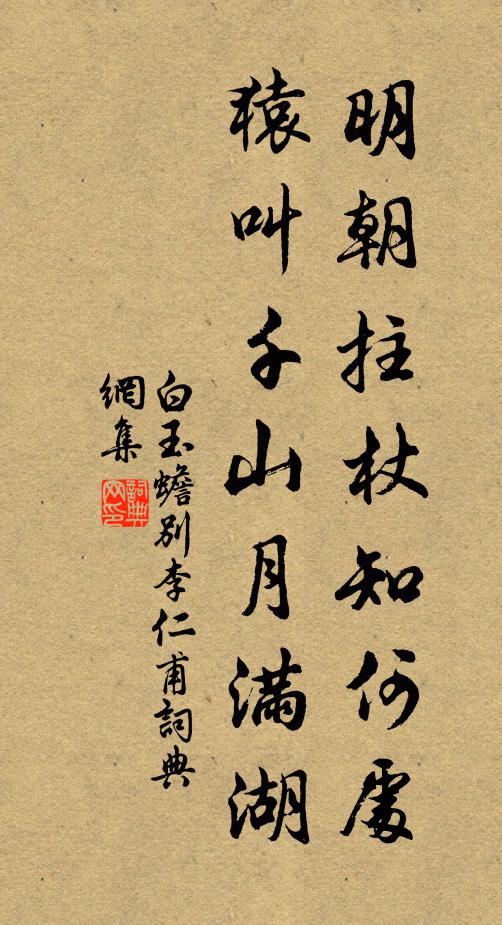 明朝拄杖知何處
猿叫千山月滿湖
白玉蟾別李仁甫詞典
網集
詞典網印